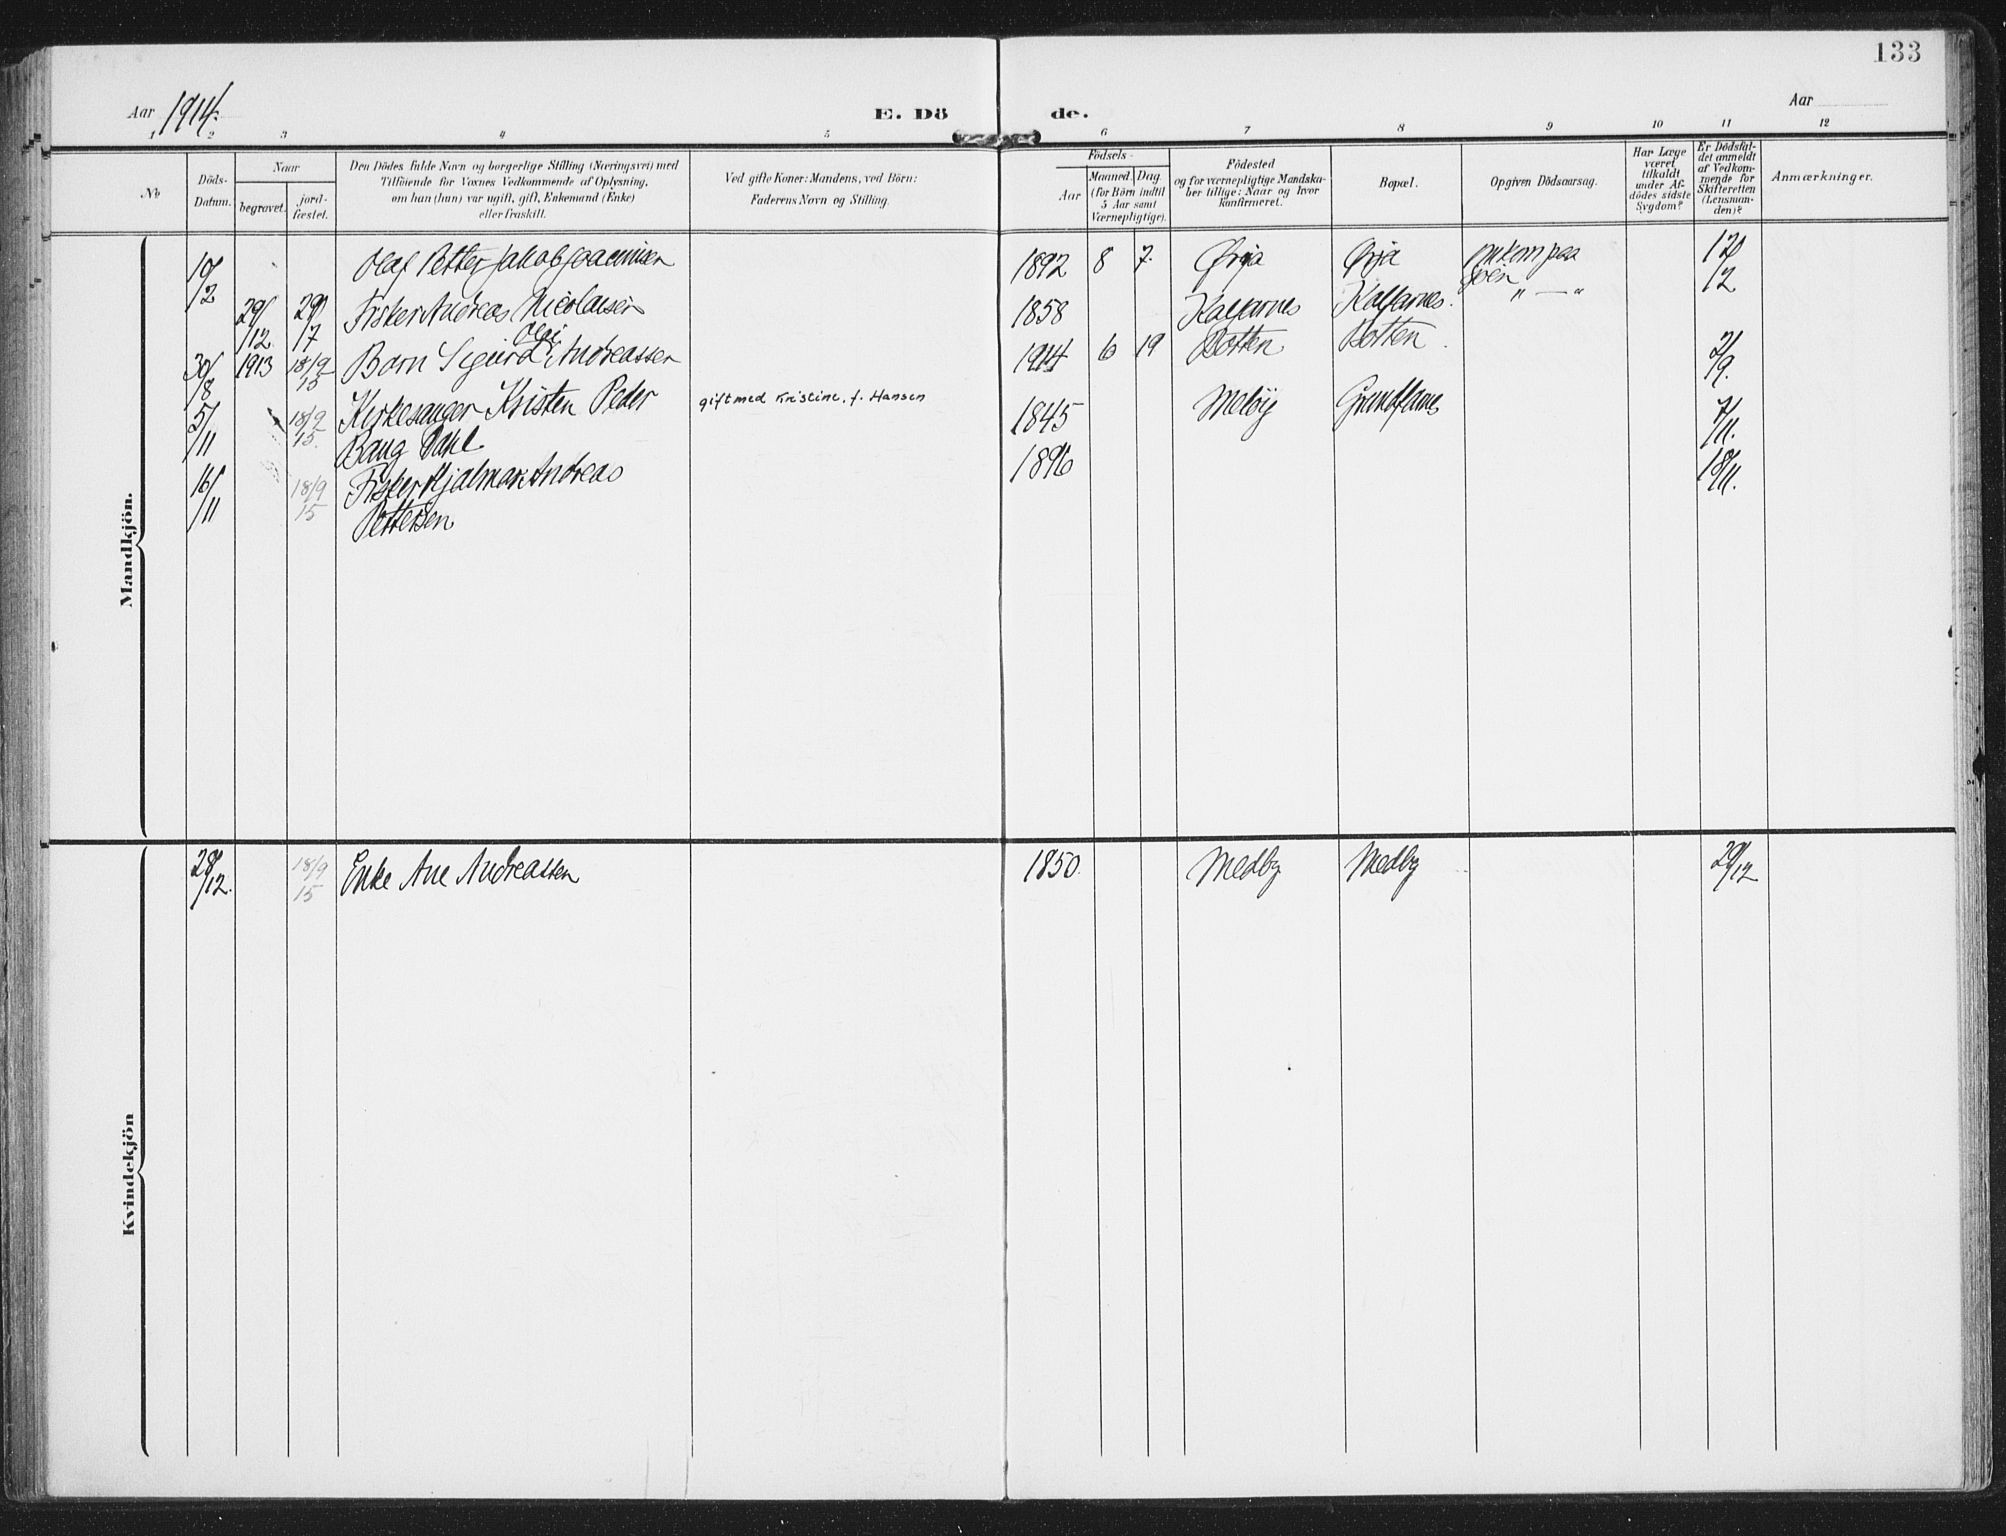 133
Aar 1914.
E. Döde.
Aar
1 2 3 4 5 6 7 8 9 10 11 12
No
Döds-
Datum.
Naar
begravet.
jord-
fæstet.
Den Dödes fulde Navn og borgerlige Stilling (Næringsvei) med
Tilföiende for Voxnes Vedkommende af Oplysning,
om han (hun) var ugift, gift, Enkemand (Enke)
eller fraskilt.
Ved gifte Koner: Mandens, ved Börn:
Faderens Navn og Stilling.
Födsels-
Aar
Maaned. Dag.
(for Börn indtil
5 Aar samt
Værnepligtige).
Födested
og for værnepligtige Mandska-
ber tillige: Naar og hvor
konfirmeret.
Bopæl.
Opgiven Dödsaarsag.
Har Læge
været
tilkaldt
under Af-
dödes sidste
Sygdom?
Er Dödsfal-
det anmeldt
af Vedkom-
mende for
Skifteretten
(Lensman-
den)?
Anmærkninger.
Mandkjön.
10/2 Olaf Petter Jakob 1892 8 7. omkom paa 12/2
29/12 1913 29/7 Fisker Andreas Nicolaisen 1858 „ — “
30/8 18/9 15 Barn Sigurd Andreassen 1914 6 19 Botten Botten 2/9.
5/11 18/9 15. Kirkesanger Kristen Peder gift med Kristine, f. Hansen 1845 Melöy 7/11.
Bang Dahl
16/11 18/9 15 Fisker Hjalmar Andreas 1896 18/11.
Pettersen
Kvindekjön
28/12. 18/9 15 Enke Ane Andreassen 1850. Medby Medby 29/12